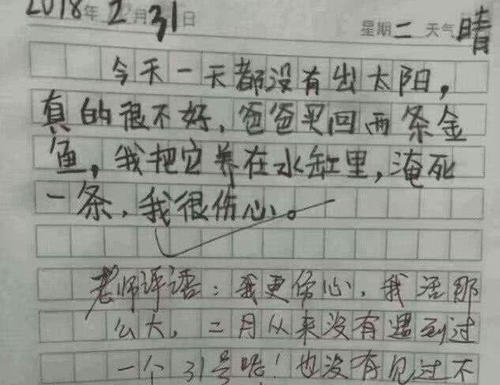 2018年2月31日 星期二 天气晴
今天一天都没有出太阳，
真的很不好，爸爸买回两条金
鱼，我把它养在水缸里，淹死
一条，我很伤心。
老师评语：我更伤心，我活那
么大，二月从来没有遇到过
一个31号呢！也没有见过不